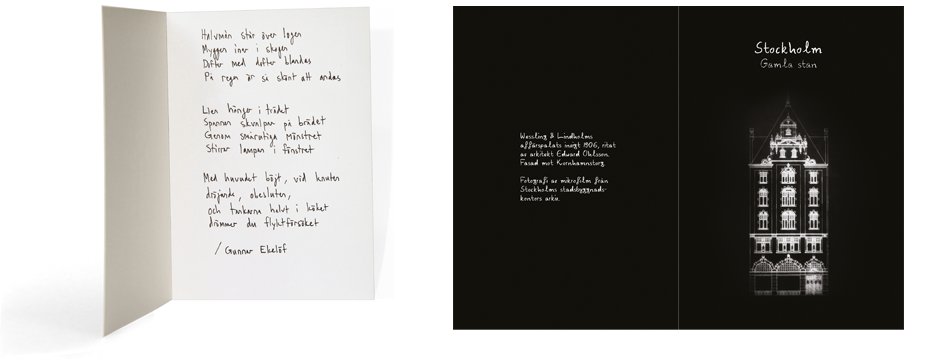 Halvmån står över logen
Myggen inar i skogen
Dofter med dofter blandas
På regn är så skönt att andas
Lien hänger i trädet
Spannar skvalpar på brädet
Genom smårutiga mönstret
Stirrar lampan i fönstret
Med huvudet böjt, vid knuten
dröjande, obesluten,
och tankarna halvt i köket
drömmer du flyktförsöket
/ Gunnar Ekelöf
Wessling & Lindholms
affärspalats invigt 1906, ritat
av arkitekt Edward Ohlsson.
Fasad mot Kornhamnstorg.
Fotografi av mikrofilm från
Stockholms stadsbyggnads-
kontors arkiv.
Stockholm
Gamla stan